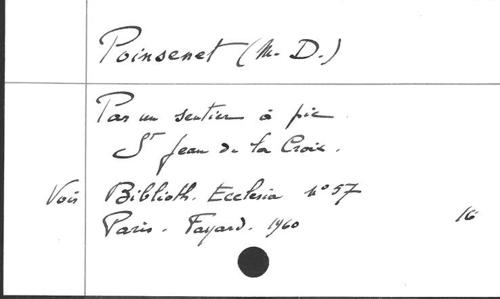 Poinsenet (M. D.)
Par un sentier à pic
St Jean de la Croix.
Voir Biblioth. Ecclesia n° 57
Paris. Fayard. 1960 16